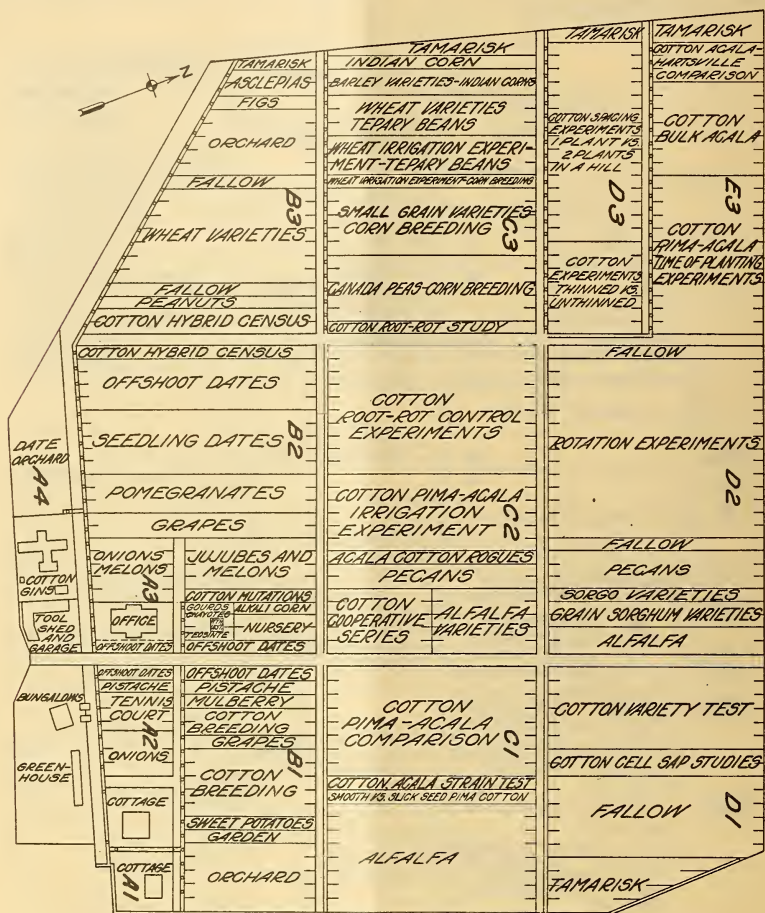 N
TAMARISK
ASCLEPIAS
FIGS
ORCHARD
FALLOW
B3
WHEAT VARIETIES
FALLOW
PEANUTS
COTTON HYBRID CENSUS
TAMARISK
INDIAN CORN
BARLEY VARIETIES-INDIAN CORNS
WHEAT VARIETIES
TEPARY BEANS
WHEAT IRRIGATION EXPERI-
MENT-TEPARY BEANS
WHEAT IRRIGATION EXPERIMENT-CORN BREEDING
SMALL GRAIN VARIETIES
CORN BREEDING
C3
CANADA PEAS-CORN BREEDING
COTTON ROOT-ROT STUDY
TAMARISK
COTTON SPACING
EXPERIMENTS
1 PLANT VS.
2 PLANTS
IN A HILL
D3
COTTON
EXPERIMENTS
THINNED VS.
UNTHINNED
TAMARISK
COTTON ACALA-
HARTSVILLE
COMPARISON
COTTON
BULK ACALA
E3
COTTON
PIMA-ACALA
TIME OF PLANTING
EXPERIMENTS
COTTON HYBRID CENSUS
OFFSHOOT DATES
SEEDLING DATES
B2
POMEGRANATES
GRAPES
COTTON
ROOT-ROT CONTROL
EXPERIMENTS
COTTON PIMA-ACALA
IRRIGATION
EXPERIMENT
C2
ACALA COTTON ROGUES
PECANS
COTTON
COOPERATIVE
SERIES
ALFALFA
VARIETIES
FALLOW
ROTATION EXPERIMENTS
D2
FALLOW
PECANS
SORGO VARIETIES
GRAIN SORGHUM VARIETIES
ALFALFA
DATE
ORCHARD
A4
COTTON
GINS
TOOL
SHED
AND
GARAGE
ONIONS
MELONS
A3
OFFICE
OFFSHOOT DATES
JUJUBES AND
MELONS
COTTON MUTATIONS
GOURDS
CHAYOTES
TEOSINTE
ALKALI CORN
NURSERY
OFFSHOOT DATES
BUNGALOWS
GREEN-
HOUSE
OFFSHOOT DATES
PISTACHE
TENNIS
COURT
A2
ONIONS
COTTAGE
COTTAGE
A1
OFFSHOOT DATES
PISTACHE
MULBERRY
COTTON
BREEDING
GRAPES
B1
COTTON
BREEDING
SWEET POTATOES
GARDEN
ORCHARD
COTTON
PIMA-ACALA
COMPARISON
C1
COTTON, ACALA STRAIN TEST
SMOOTH VS. SLICK SEED PIMA COTTON
ALFALFA
COTTON VARIETY TEST
COTTON CELL SAP STUDIES
FALLOW
D1
TAMARISK